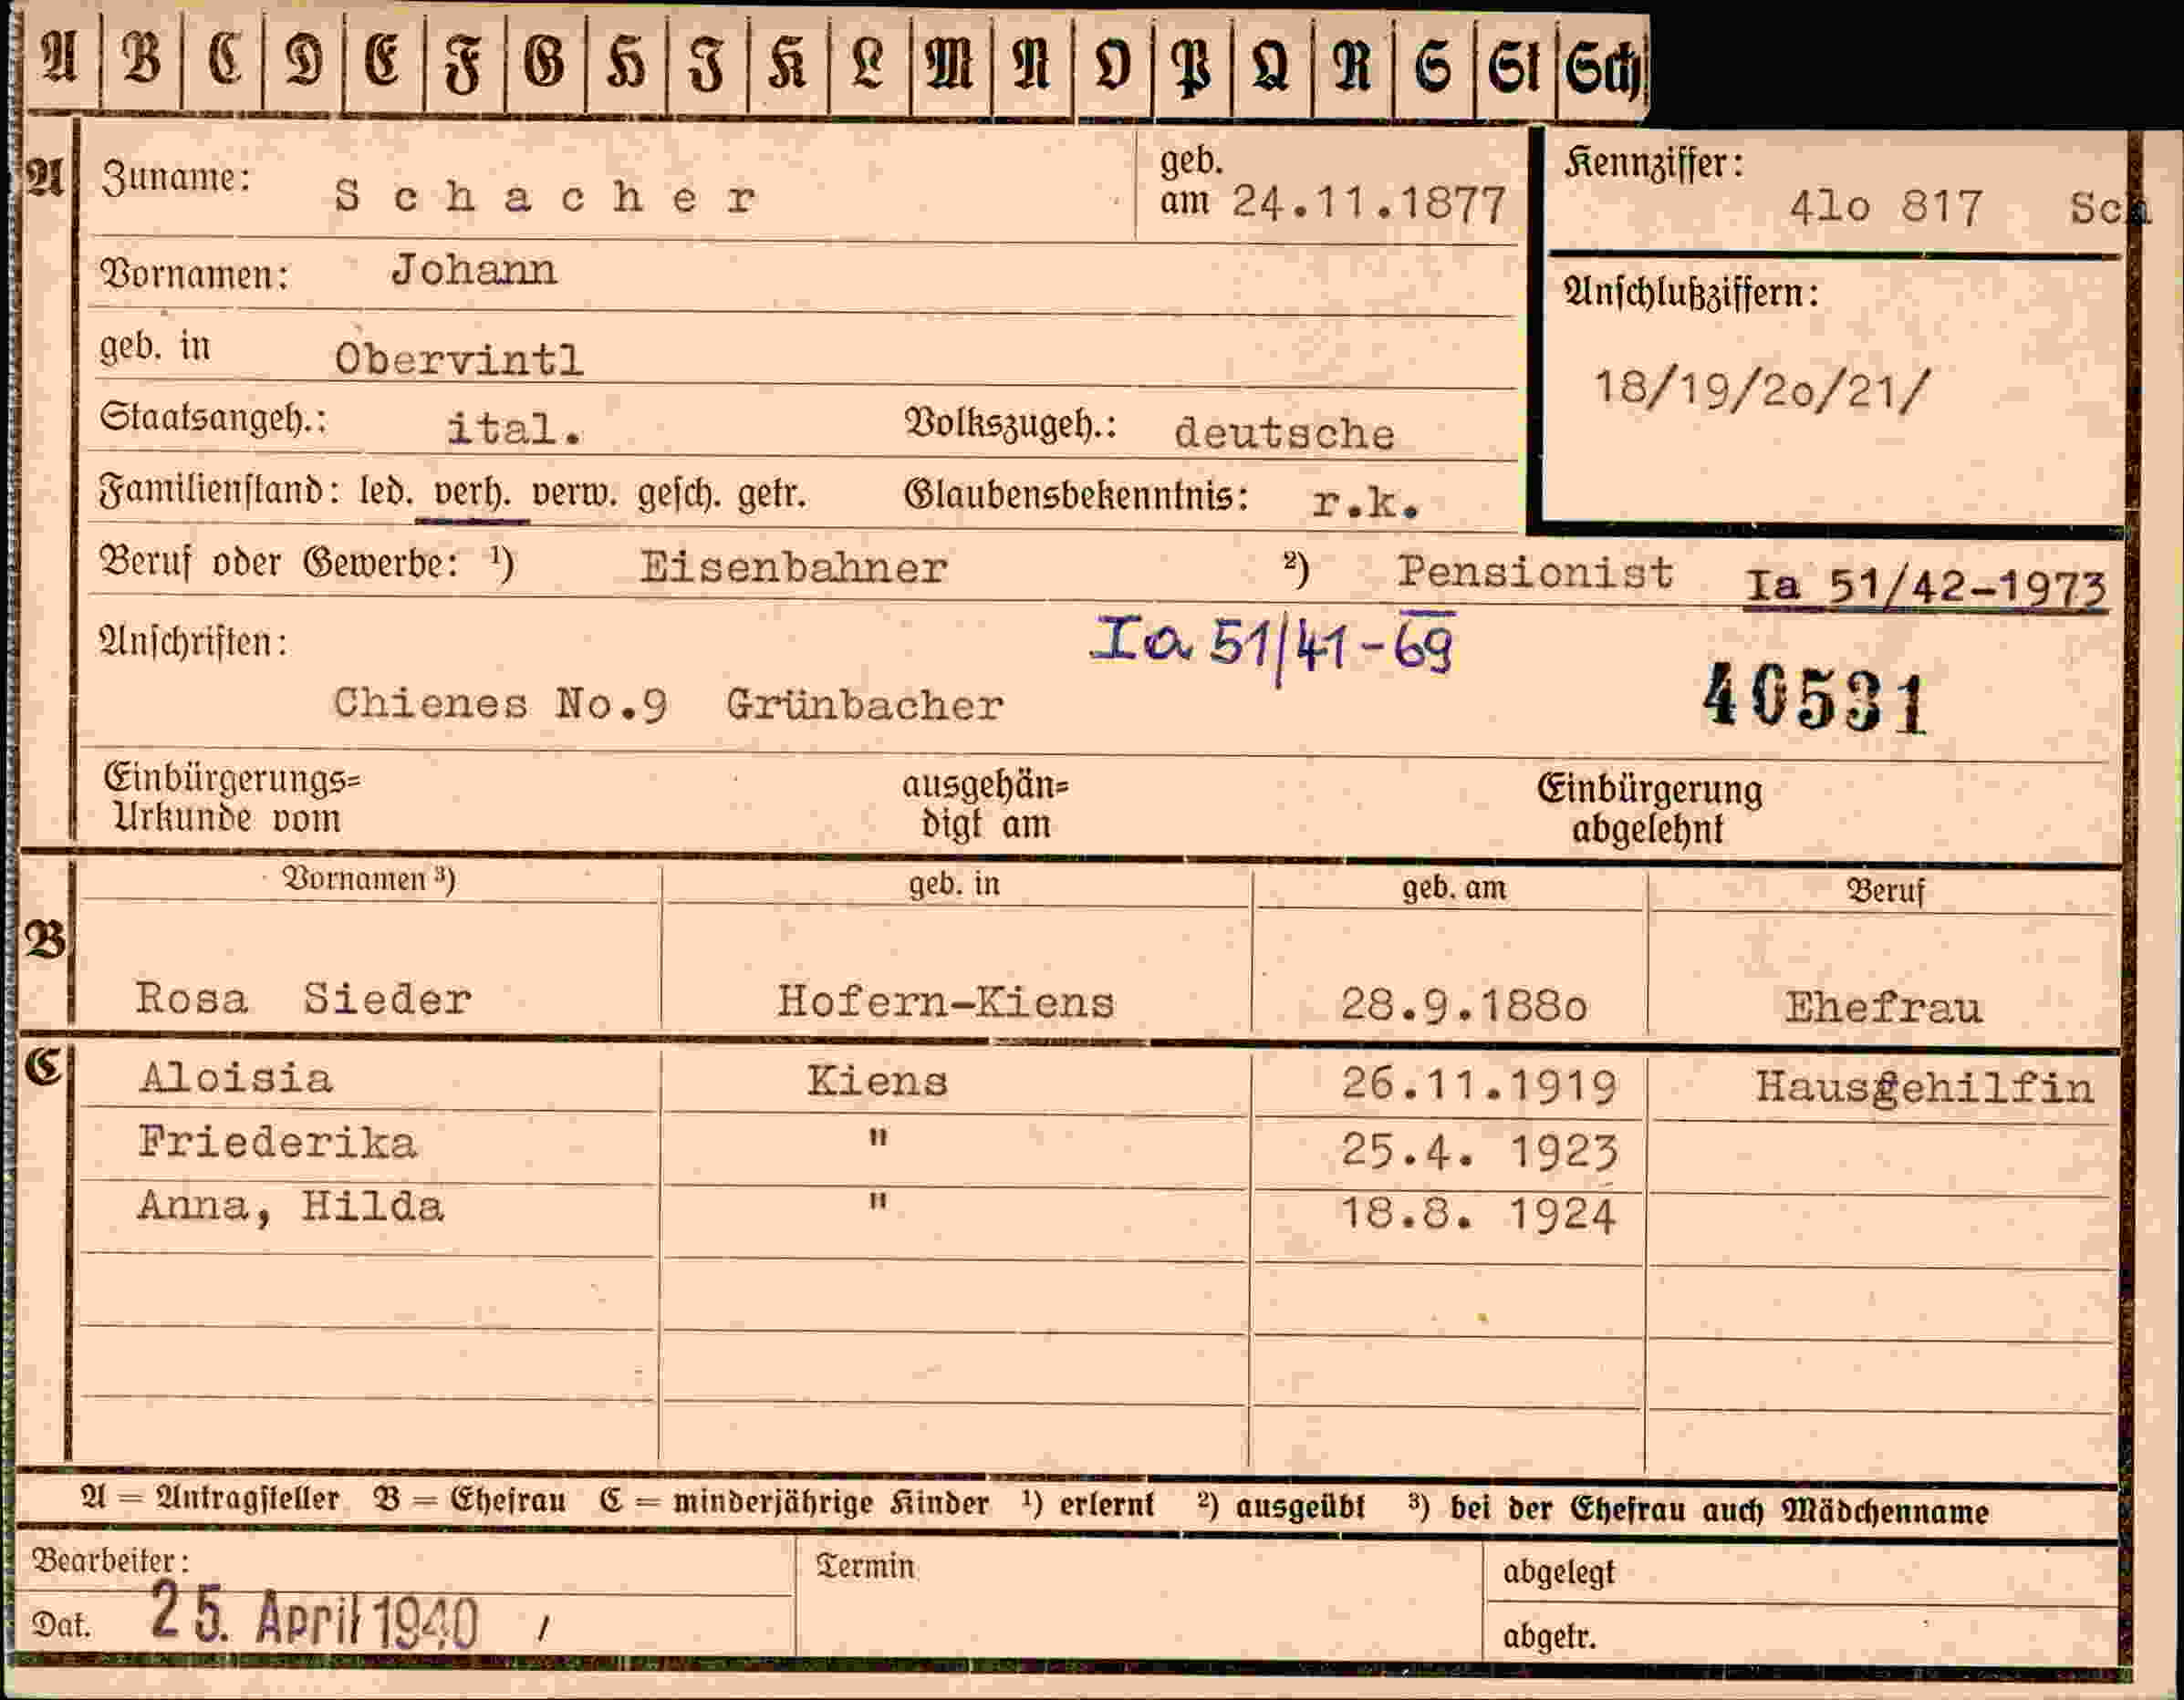 A B C D E F G H I K L M N O P Q R S St Sch
A Zuname: Schacher geb. am 24.11.1877 Kennziffer: 41o 817 Sch
Vornamen: Johann
geb. in Obervintl Anschlußziffern:
18/19/2o/21/
Staatsangeh.: ital. Volkszugeh.: deutsche
Familienstand: led. verh. verw. gesch. getr. Glaubensbekenntnis: r.k.
Beruf oder Gewerbe: ¹) Eisenbahner ²) Pensionist Ia 51/42-1973
Anschriften: Ia 51/41-69
Chienes No.9 Grünbacher 40531
Einbürgerungs= ausgehän= Einbürgerung
Urkunde vom digt am abgelehnt
B Vornamen ³) geb. in geb. am Beruf
Rosa Sieder Hofern-Kiens 28.9.188o Ehefrau
C Aloisia Kiens 26.11.1919 Hausgehilfin
Friederika " 25.4. 1923
Anna, Hilda " 18.8. 1924
A = Antragsteller B = Ehefrau C = minderjährige Kinder ¹) erlernt ²) ausgeübt ³) bei der Ehefrau auch Mädchenname
Bearbeiter: Termin abgelegt
Dat. 25. April 1940 / abgetr.